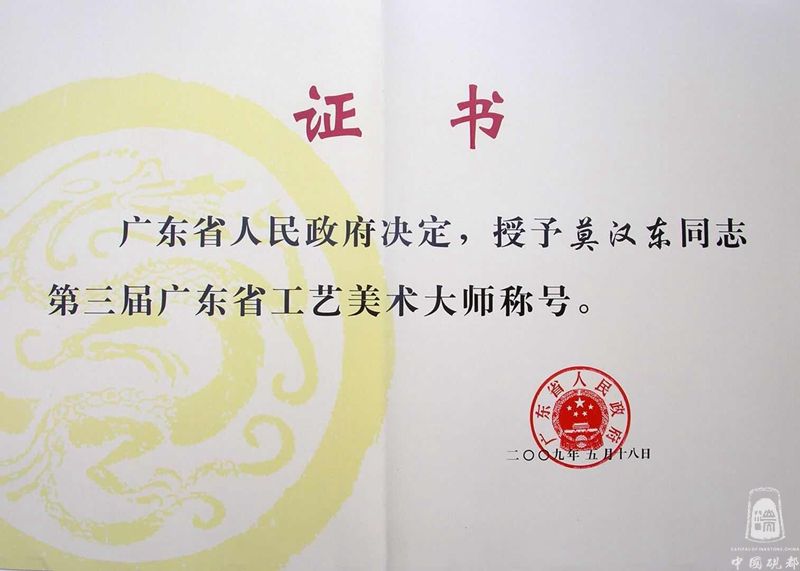 证书
广东省人民政府决定，授予莫汉东同志
第三届广东省工艺美术大师称号。
广东省人民政府
二〇〇九年五月十八日
端
CAPITAL OF INKSTONE, CHINA
中國硯都